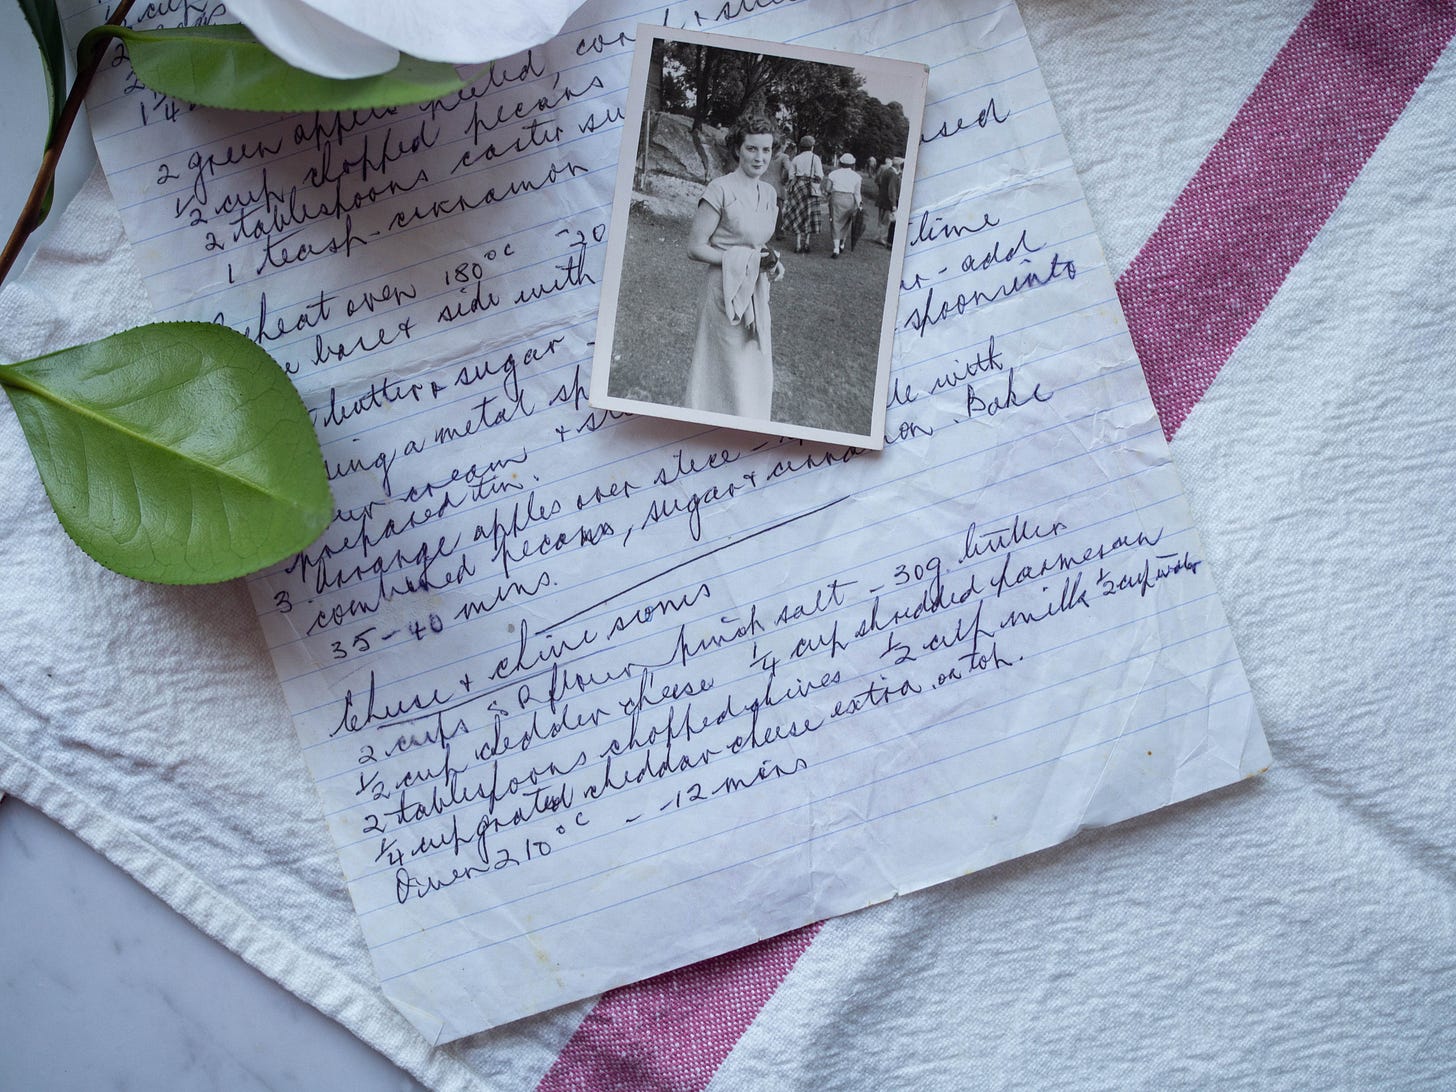 ½ cup
2
2
1¼
2 green apples peeled, cor
½ cup chopped pecans
2 tablespoons caster su used
1 teasp - cinnamon
heat oven 180°C - 20
base & side with time
butter & sugar - - add
ing a metal sp spoon into
our cream & st
prepared tin.
3 Arrange apples over slice - with
combined pecans, sugar & cinnamon. Bake
35 - 40 mins.
Cheese & chive scones
2 cups SR flour pinch salt - 30g. butter
½ cup chedder cheese ¼ cup shredded parmesan
2 tablespoons chopped chives ½ cup milk ½ cup water
¼ cup grated cheddar cheese extra. on top.
Owen 210°C - - 12 mins